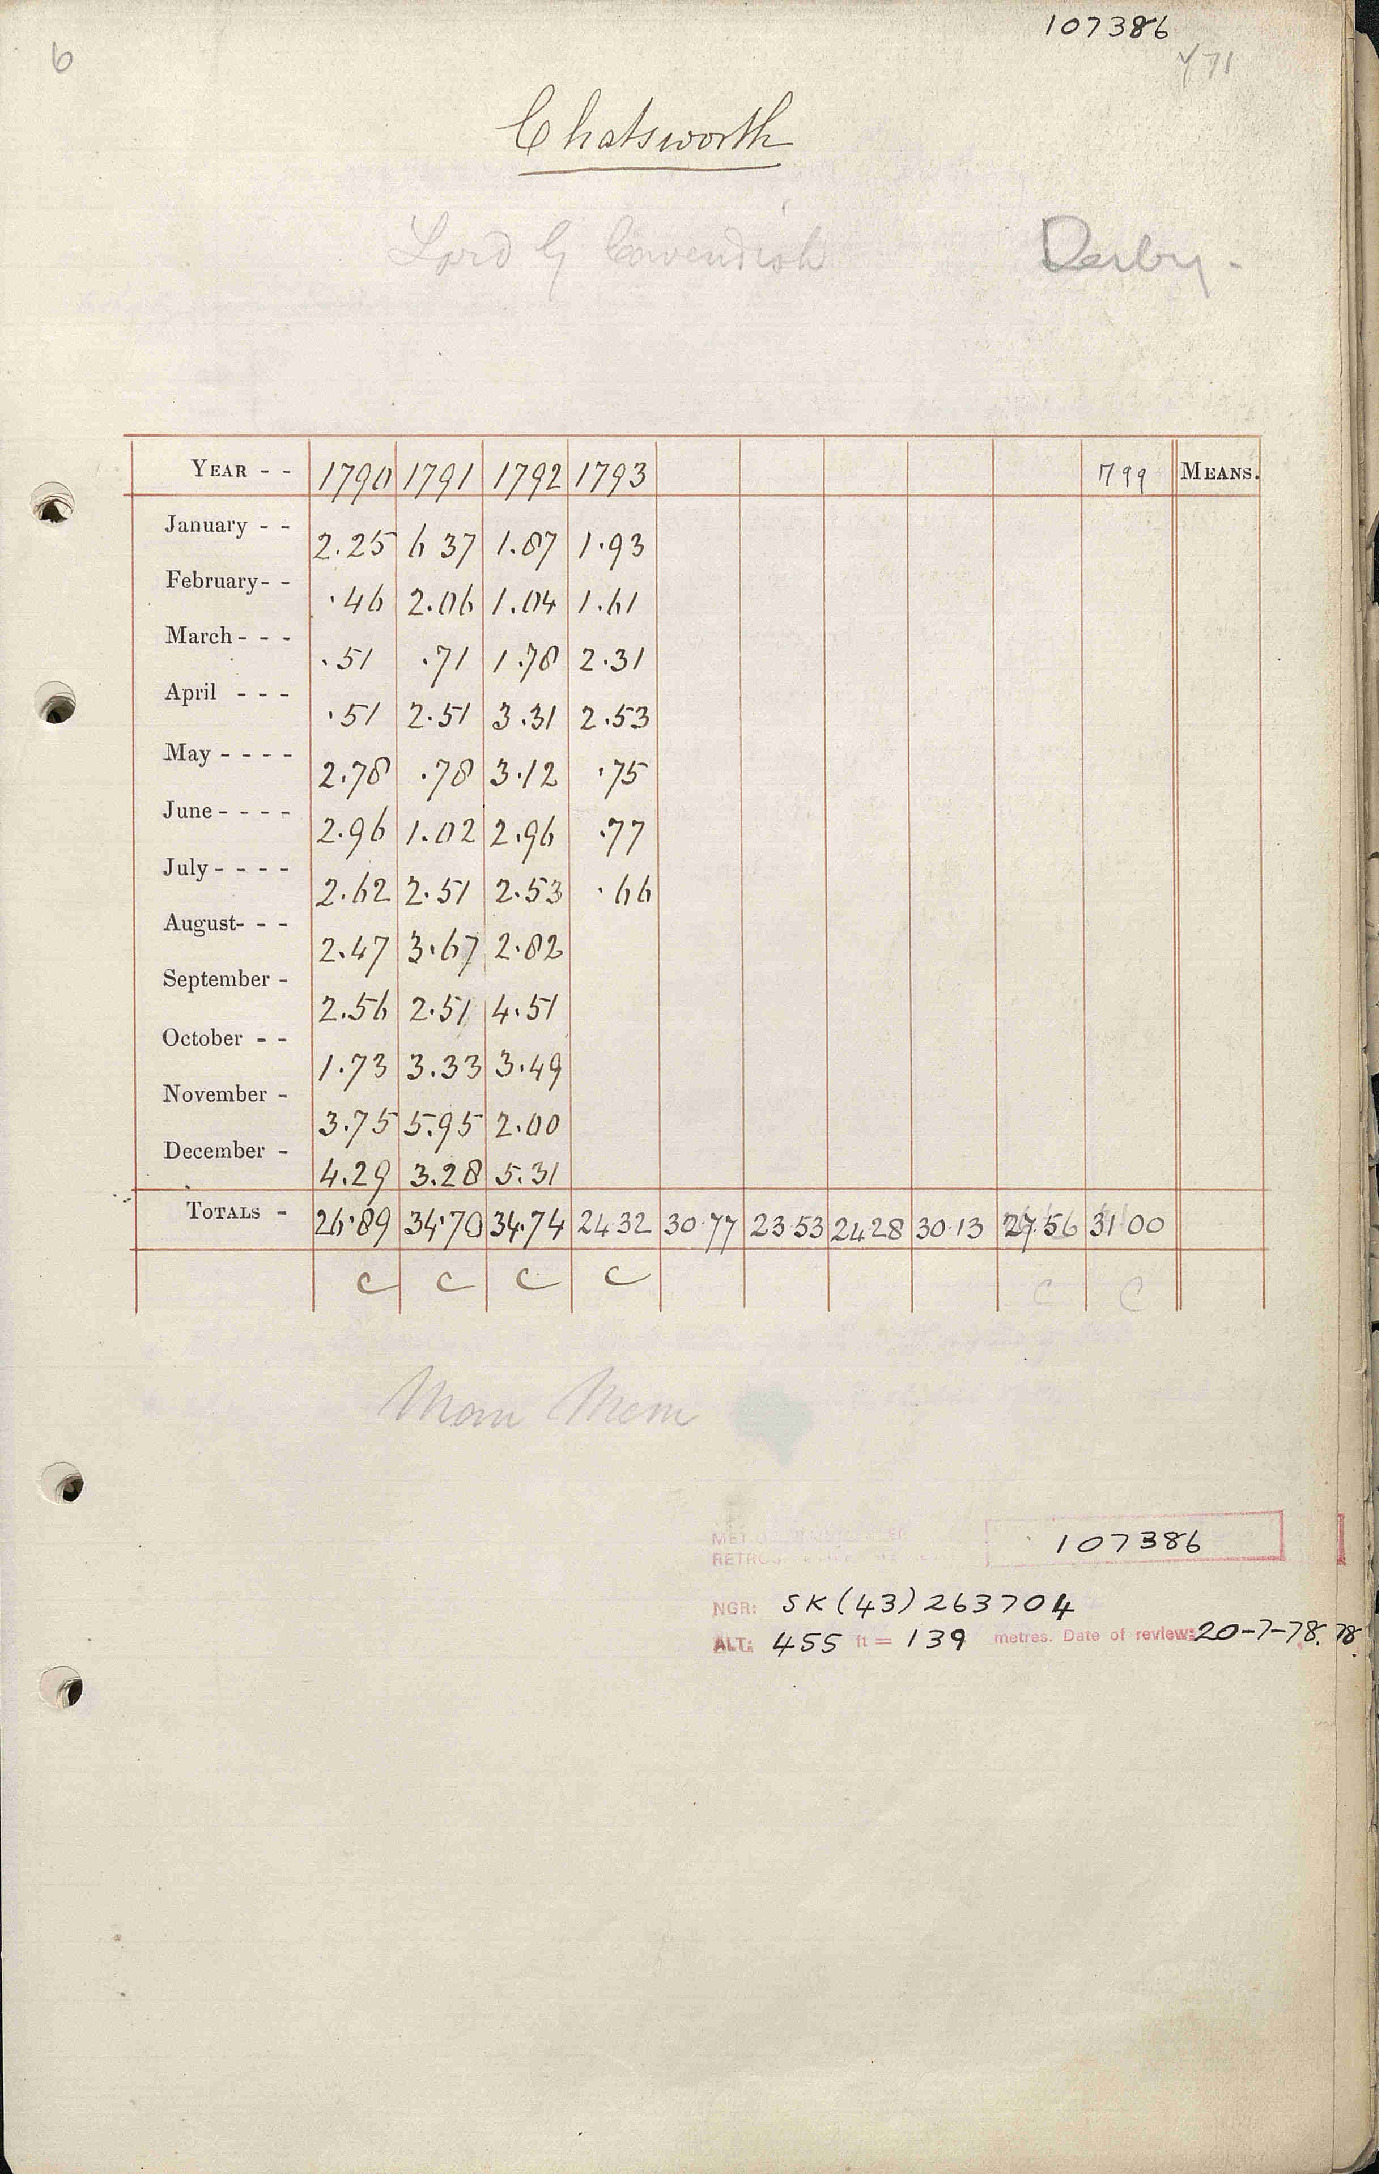 107386
6
471
Chatsworth
Lord G Cavendish Derby.
YEAR - - 1790 1791 1792 1793 799 MEANS.
January - - 2.25 6 37 1.87 1.93
February - - .46 2.06 1.04 1.61
March - - - .51 .71 1.78 2.31
April - - - .51 2.51 3.31 2.53
May - - - - 2.78 .78 3.12 .75
June - - - - 2.96 1.02 2.96 .77
July - - - - 2.62 2.51 2.53 .66
August- - - 2.47 3.67 2.82
September - 2.56 2.51 4.51
October - - 1.73 3.33 3.49
November - 3.75 5.95 2.00
December - 4.29 3.28 5.31
TOTALS - 26.89 34.70 34.74 24 32 30.77 23.53 24.28 30.13 27.56 31 00
C C C C C C
107386
NGR: SK (43) 263704
ALT: 455 ft = 139 metres. Date of review: 20-7-78. 78.